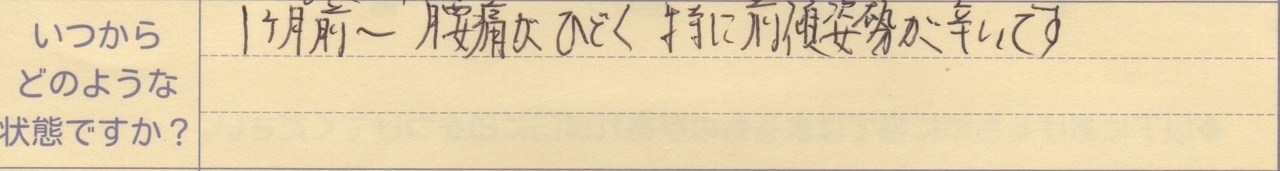 いつから
どのような
状態ですか？
1ヶ月前〜 腰痛がひどく 特に前傾姿勢が辛いです